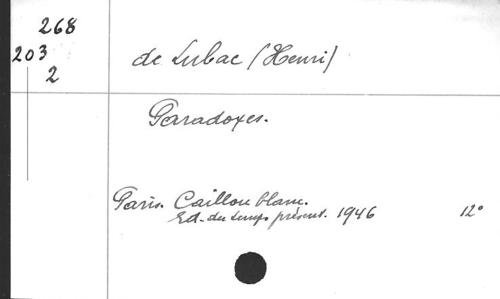 268
203
2
de Lubac (Henri)
Paradoxes.
Paris. Caillou blanc.
Ed. du temps présent. 1946 12°